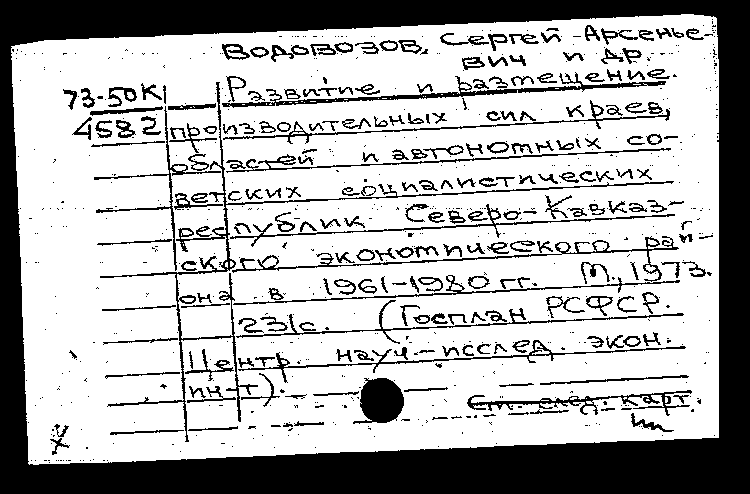 Водовозов, Сергей Арсенье-
вич и др.
73-50К Развитие и размещение
4582 производительных сил краев,
областей и автономных со-
ветских социалистических
республик Северо-Кавказ-
ского экономического рай-
она в 1961-1980 гг. М., 1973.
231с. (Госплан РСФСР.
Центр. науч-исслед. экон.
ин-т).
См. след. карт.